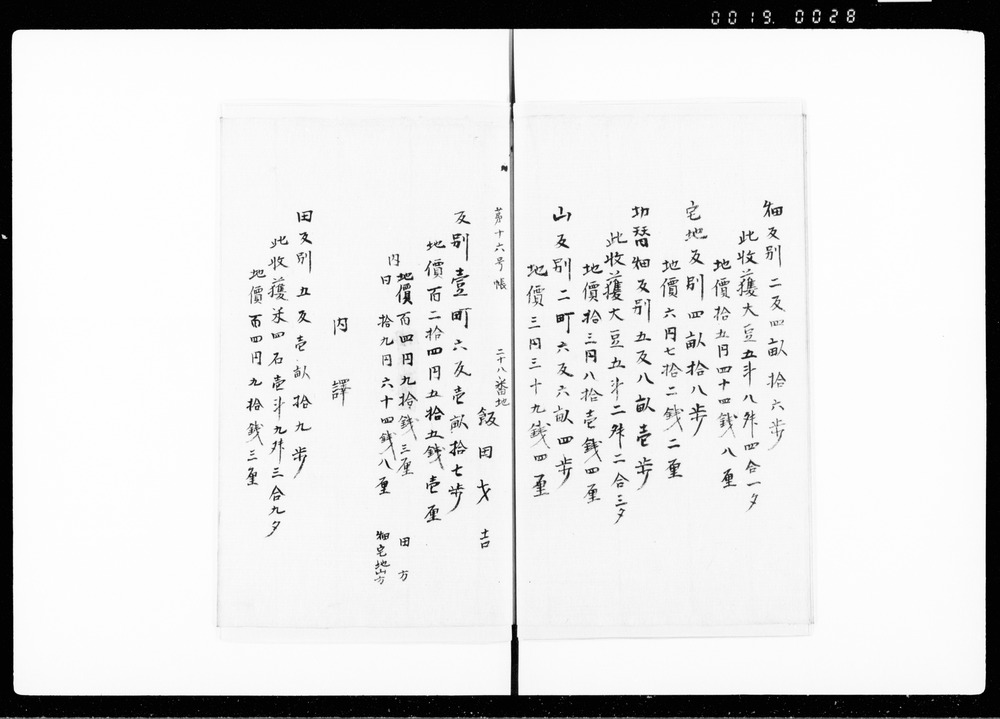 0019. 0028
畑反別 二反四畝拾六歩
此收獲大豆五斗八舛四合一夕
地價拾五円四十四錢八厘
宅地反別四畝拾八歩
地價六円七拾二錢二厘
切替畑反別五反八畝壱歩
此收獲大豆五斗二舛二合三夕
地價拾三円八拾壱錢四厘
山反別二町六反六畝四歩
地價三円三十九錢四厘
第十六号帳 二十八番地
飯田才吉
反別壹町六反壱畝拾七歩
地價百二拾四円五拾五錢壱厘
内 地價百四円九拾錢三厘 田方
日 拾九円六十四錢八厘 畑宅地山方
内譯
田反別 五反壱畝拾九歩
此收獲米四石壱斗九舛三合九夕
地價百四円九拾錢三厘